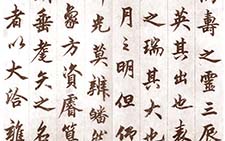 壽之靈三辰
英其出也表
之瑞其大也
月之明但仰
光莫辨蟠
象方資
垂矢之名
者以大洽雍